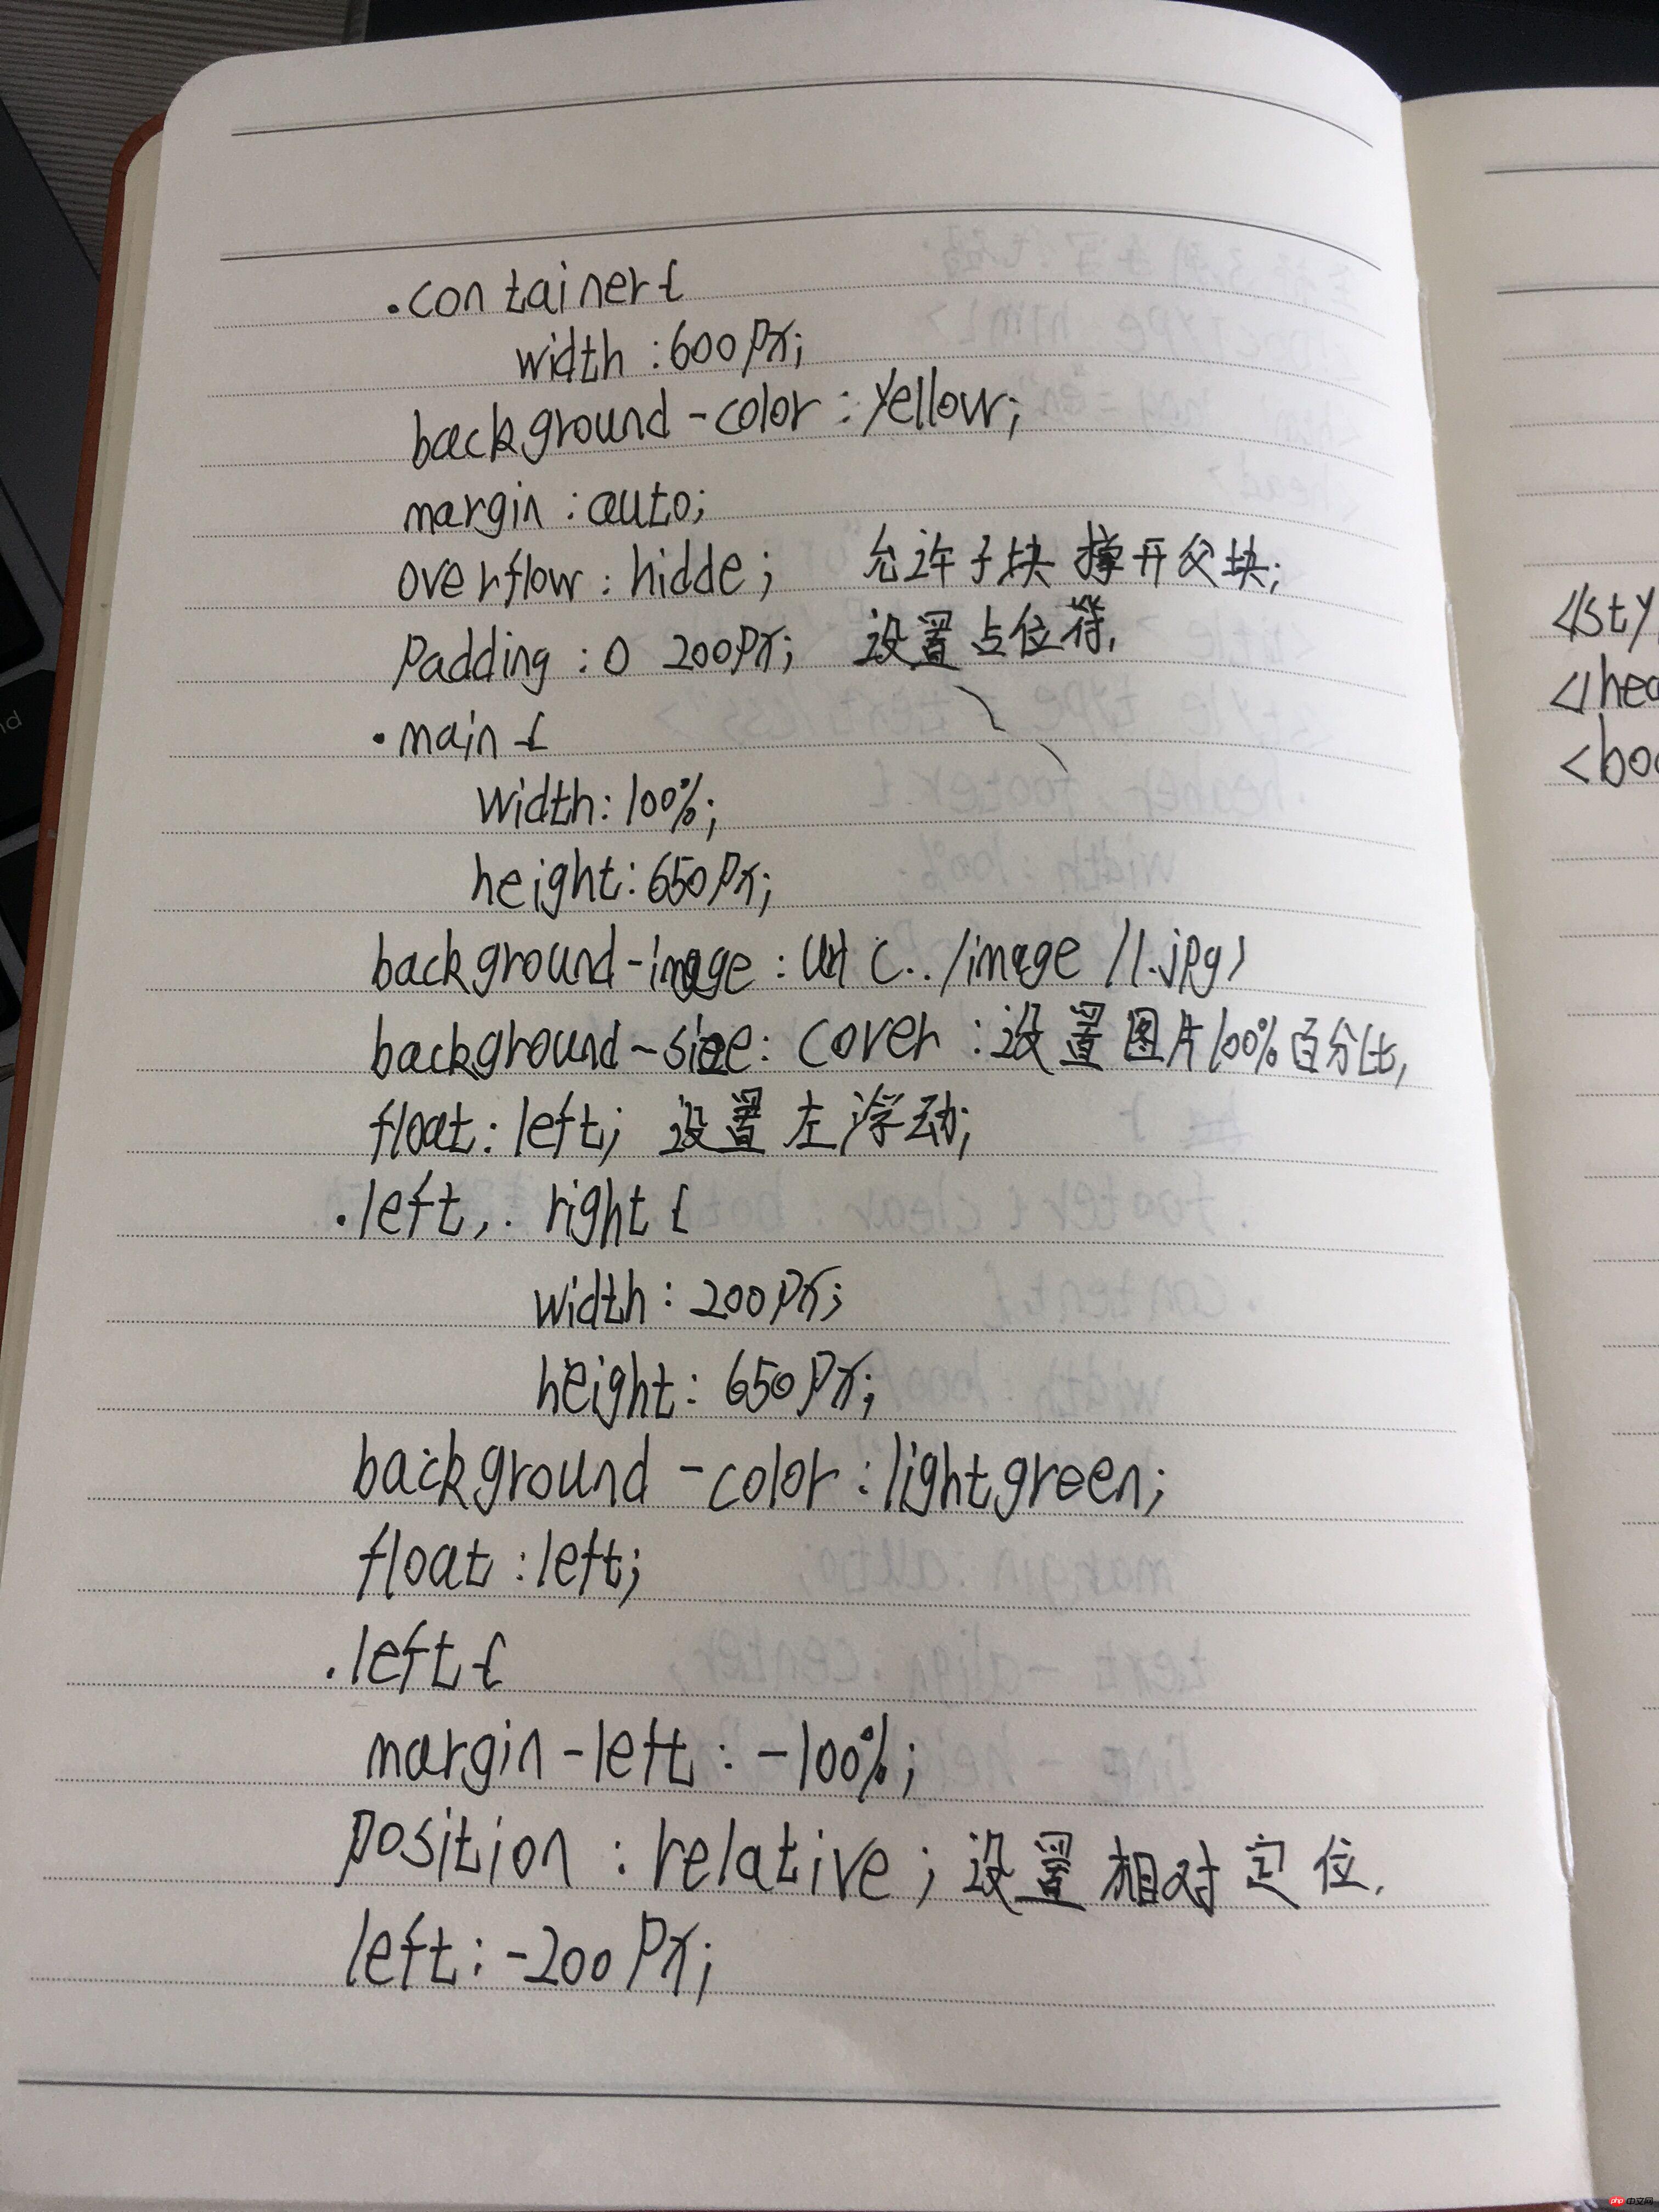 .container{
width :600px;
background-color : yellow;
margin :auto;
overflow : hidde ; 允许子块 撑开父块;
Padding : 0 200px; 设置占位符.
.main {
width: 100%;
height: 650px;
background-image : url (../image /1.jpg)
background-size: cover : 设置图片100%百分比,
float: left; 设置左浮动;
.left, . right {
width: 200px;
height: 650px;
background -color : lightgreen;
float : left;
.left {
margin-left : -100%;
position : relative ; 设置相对定位.
left: -200px;
</sty
</hea
<bod
nd
php 中文网